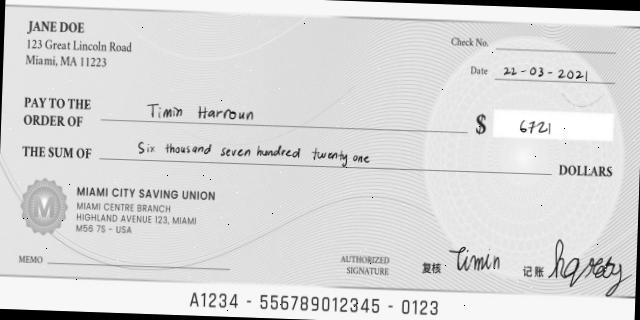 JANE DOE
123 Great Lincoln Road
Miami, MA 11223
Check No.
Date 22-03-2021
PAY TO THE
ORDER OF Timin Harroun
$ 6721
THE SUM OF Six thousand seven hundred twenty one DOLLARS
M
MIAMI CITY SAVING UNION
MIAMI CENTRE BRANCH
HIGHLAND AVENUE 123, MIAMI
M56 7S - USA
MEMO
AUTHORIZED
SIGNATURE
复核 Timin 记账
A1234 - 556789012345 - 0123